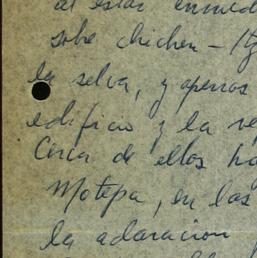 al estar
sobre chichen-Itz
la selva, y apenas
edificio y la re
Cerca de ellos ha
Motepa, en las
la adoración